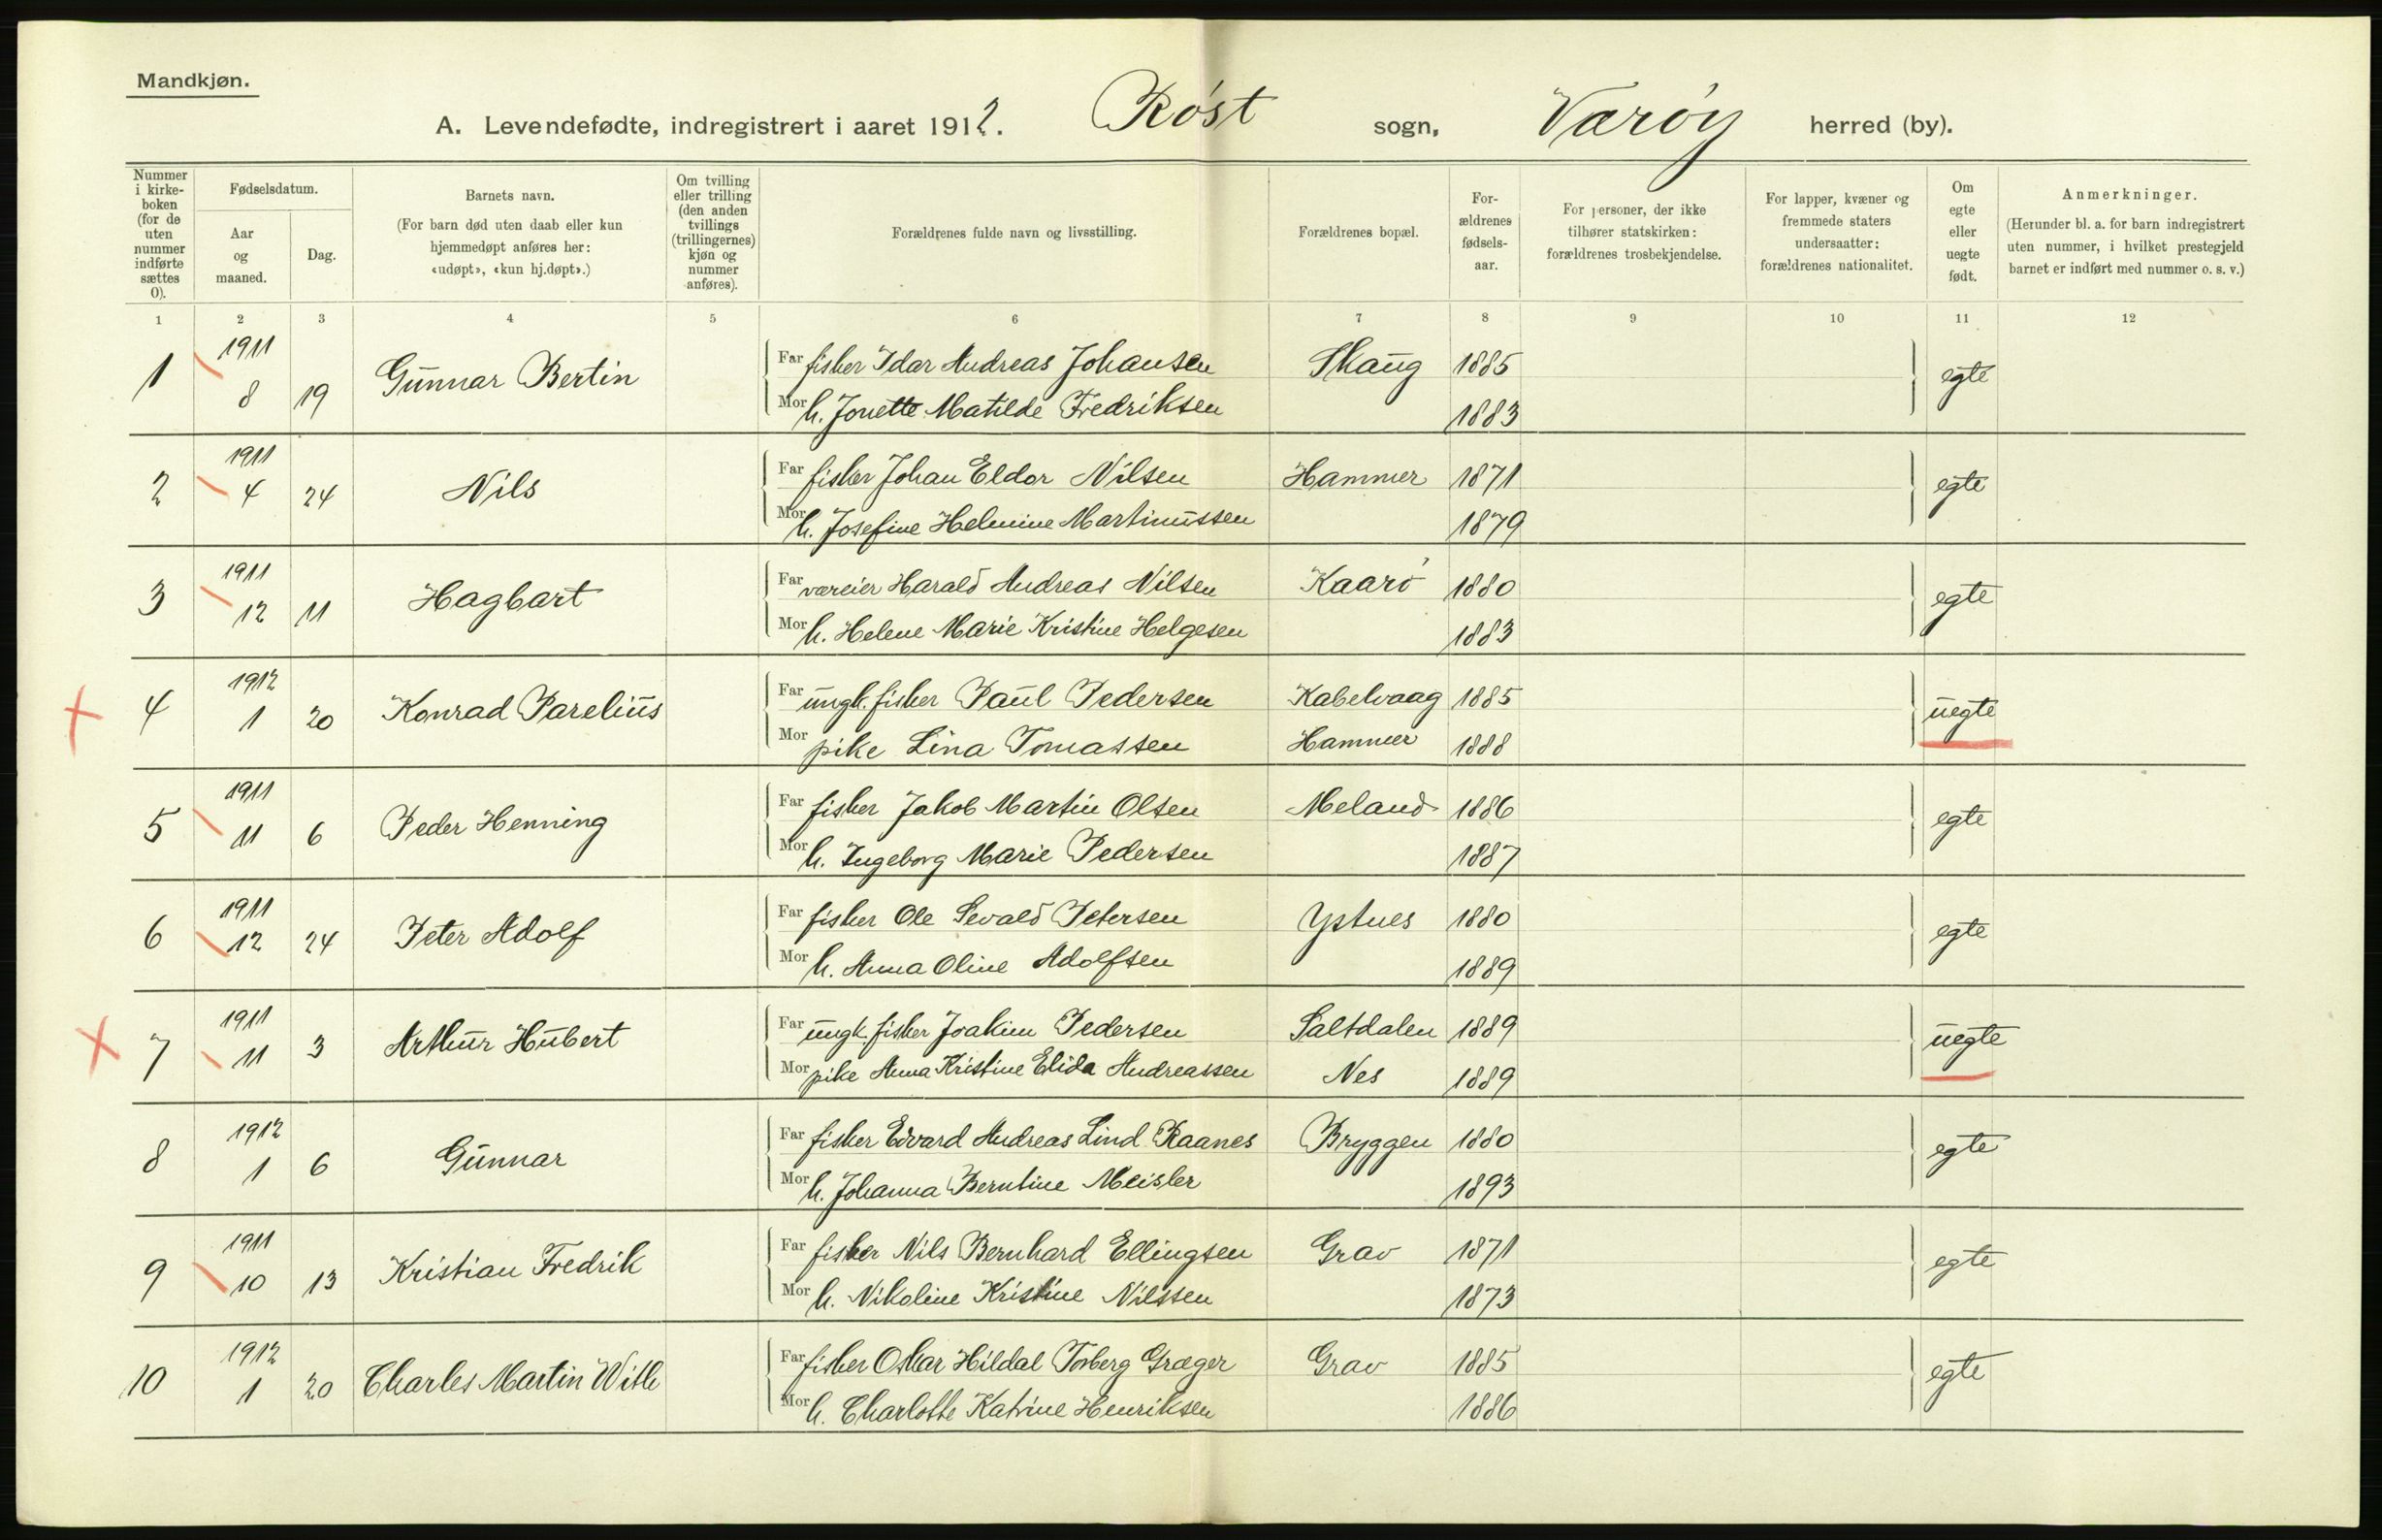 Mandkjøn.
A. Levendefødte, indregistrert i aaret 1912. Røst sogn, Værøy herred (by).
Nummer i kirkeboken (for de uten nummer indførte sættes 0).
Fødselsdatum.
Aar og maaned.
Dag.
Barnets navn.
(For barn død uten daab eller kun hjemmedøpt anføres her: «udøpt», «kun hj.døpt».)
Om tvilling eller trilling (den anden tvillings (trillingernes) kjøn og nummer anføres).
Forældrenes fulde navn og livsstilling.
Forældrenes bopæl.
Forældrenes fødselsaar.
For personer, der ikke tilhører statskirken: forældrenes trosbekjendelse.
For lapper, kvæner og fremmede staters undersaatter: forældrenes nationalitet.
Om egte eller uegte født.
Anmerkninger.
(Herunder bl. a. for barn indregistrert uten nummer, i hvilket prestegjeld barnet er indført med nummer o. s. v.)
1 2 3 4 5 6 7 8 9 10 11 12
1 1911 8 19 Gunnar Bertin Far fisker Idar Andreas Johansen Skaug 1885 egte
Mor h. Jonette Matilde Fredriksen 1883
2 1911 4 24 Nils Far fisker Johan Eldor Nilsen Hammer 1871 egte
Mor h. Josefine Helmine Martinussen 1879
3 1911 12 11 Hagbart Far væreier Harald Andreas Nilsen Kaarø 1880 egte
Mor h. Helene Marie Kristine Helgesen 1883
4 1912 1 20 Konrad Parelius Far ungk. fisker Paul Pedersen Kabelvaag 1885 uegte
Mor pike Lina Tomassen Hammer 1888
5 1911 11 6 Peder Henning Far fisker Jakob Martin Olsen Meland 1886 egte
Mor h. Ingeborg Marie Pedersen 1887
6 1911 12 24 Peter Adolf Far fisker Ole Sevald Petersen Ystnes 1880 egte
Mor h. Anna Oline Adolfsen 1889
7 1911 11 3 Arthur Hubert Far ungk. fisker Joakim Pedersen Saltdalen 1889 uegte
Mor pike Anna Kristine Elida Andreassen Nes 1889
8 1912 1 6 Gunnar Far fisker Edvard Andreas Lind Raanes Bryggen 1880 egte
Mor h. Johanna Berntine Meisler 1893
9 1911 10 13 Kristian Fredrik Far fisker Nils Bernhard Ellingsen Grav 1871 egte
Mor h. Nikoline Kristine Nilssen 1873
10 1912 1 20 Charles Martin With Far fisker Oskar Hildal Torberg Græger Grav 1885 egte
Mor h. Charlotte Katrine Henriksen 1886